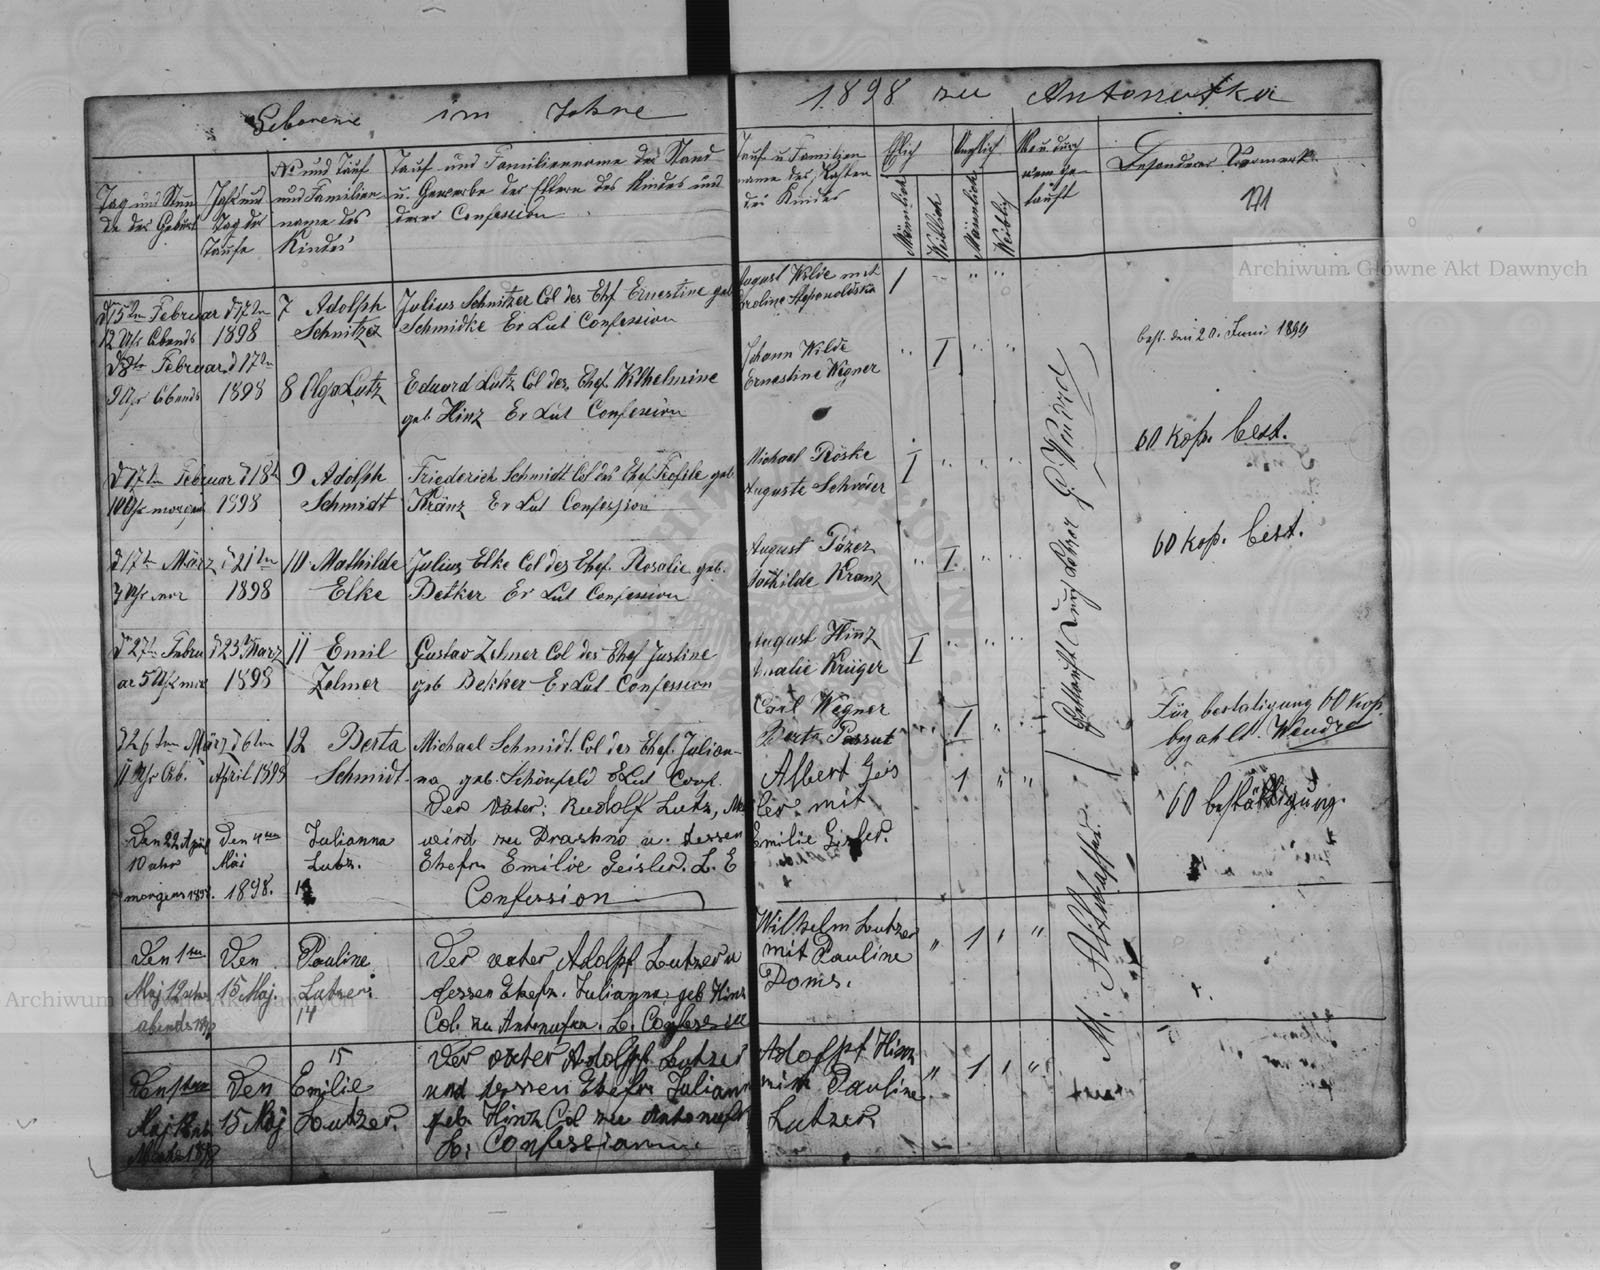 Geborene im Jahre 1898 zu Antonufka
Tag und Stun
de der Geburt
Jahr und
Tag der
Taufe
No und Tauf
und Familien
name des
Kindes
Tauf und Familienname des Stand
u. Gewerbe der Eltern des Kindes und
deren Confession
Taufu u Familien
name der Pathen
des Kindes
Ehlich
Unehlich
Männlich
Weiblich
Männlich
Weiblich
wem ge-
tauft
Archiwum Główne Akt Dawnych
d 15tn Februar
12 Uhr Abends
d 17tn
1898
7 Adolph
Schnitzer
Julius Schnitzer Col des Ehf. Ernestine geb
Schmidke Ev Lut Confession
August Wilde mit
1
d 8tn Februar
9 Uhr Abends
d 17tn
1898
8 Olga Lutz
Eduard Lutz Col des Ehef. Wilhelmine
geb. Hinz Ev Lut Confession
Johann Wilde
Ernestine Wegner
I
best. den 20. Juni 1899
60 kop. best.
d 17tn Februar
10 Uhr morgens
d 18t
1898
9 Adolph
Schmidt
Friederich Schmidt Col des Ehef. geb
Kränz Ev Lut Confession
Michael Röske
Auguste Schröer
I
60 kop. best.
d 17tn März
7 Uhr mor
d 21tn
1898
10 Mathilde
Elke
Julius Elke Col des Ehef. Rosalie geb.
Betker Ev Lut Confession
August
Mathilde Kranz
I
d 27tn Febru
ar 5 Uhr
d 23 März
1898
11 Emil
Zelmer
Gustav Zelmer Col des Ehef Justine
geb Bekker Ev Lut Confession
August Hinz
Amalie Krüger
I
d 26tn März
11 Uhr Ab.
d 6tn
April 1898
12 Berta
Schmidt
Michael Schmidt. Col des Ehef. Julian-
na geb. Schönfeld E Lut Conf.
Carl Wegner
Berta Passut
I
Für bestatigung 60 kop.
bezahlt. Wendra
Getauft Durch Lehrer G. Wendra
Den 22 April
10 uhr
morgens 1898.
Den 4ten
Mai
1898.
Julianna
Lutz.
Der Vater: Rudolf Lutz,
wird zu Draskno u. dessen
Ehefr Emilie Geisler. L. E
Confession
Albert Geis
ler mit
Emilie Gisler.
1
60 bestättigung.
Den 1ten
Maj 12 uhr
abends 1898
Den
15 Maj.
Pauline
Lutzer.
14
Der vater Adolpf Lutzer u
dessen Ehefr. Julianna geb Hinz
Col. zu Antonufka. L. Confession
Wilhelm Lutzer
mit Pauline
Doms.
1
M.
Archiwum Główne Akt Dawnych
Den 1ten
Maj
Den
15 Maj
15
Emilie
Lutzer.
Der vater Adolpf Lutzer
und dessen Ehefr Juliann
geb. Hintz Col zu Antonufk
L. Confession
Adolpf Hinz
mit Pauline
Lutzer
1